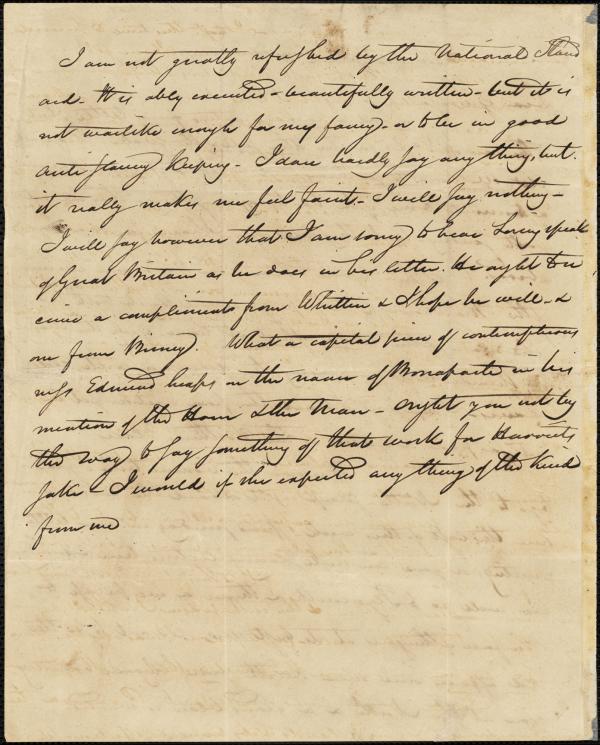 I am not greatly refreshed by the National Stand
ard - It is ably executed - beautifully written - but it is
not warlike enough for my fancy - or to be in good
anti slavery keeping - I dare hardly say any thing, but
it really makes me feel faint - I will say nothing -
I will say however that I am sorry to hear Loring speak
of Great Britain as he does in his letter. He ought to re
ceive a compliments from Whittier & I hope he will - &
one from Birney. What a capital piece of contemptuous
ness Edmund heaps on the name of Bonaparte in his
mention of the Hour & the Man - ought you not by
the way to say something of that work for Harriets
sake - I would if she expected any thing of the kind
from me